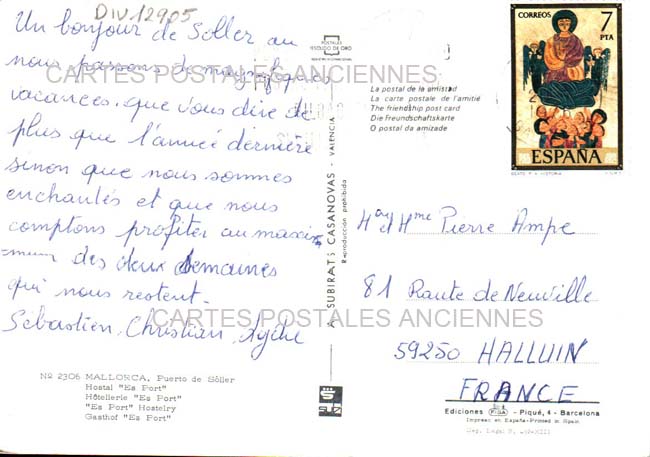 DIV.12905
Un bonjour de Soller où
nous passons de magnifiques
vacances, que vous dire de
plus que l'année dernière
sinon que nous sommes
enchantés et que nous
comptons profiter au maxi-
-mum des deux semaines
qui nous restent.
Sébastien, Christian,
CARTES POSTALES ANCIENNES
CARTES POSTALES ANCIENNES
No 2306 MALLORCA. Puerto de Sóller
Hostal "Es Port"
Hôtellerie "Es Port"
"Es Port" Hostelry
Gasthof "Es Port"
POSTALES
ESCUDO DE ORO
A. SUBIRATS CASANOVAS - VALENCIA
Reproducción prohibida
La postal de la amistad
La carte postale de l'amitié
The friendship post card
Die Freundschaftskarte
O postal da amizade
CORREOS 7
PTA
ESPAÑA
et Mme Pierre Ampe
81 Route de Neuville
59250 HALLUIN
FRANCE
Ediciones FISA - Piqué, 4 - Barcelona
Impreso en España-Printed in Spain
Dep. Legal B.